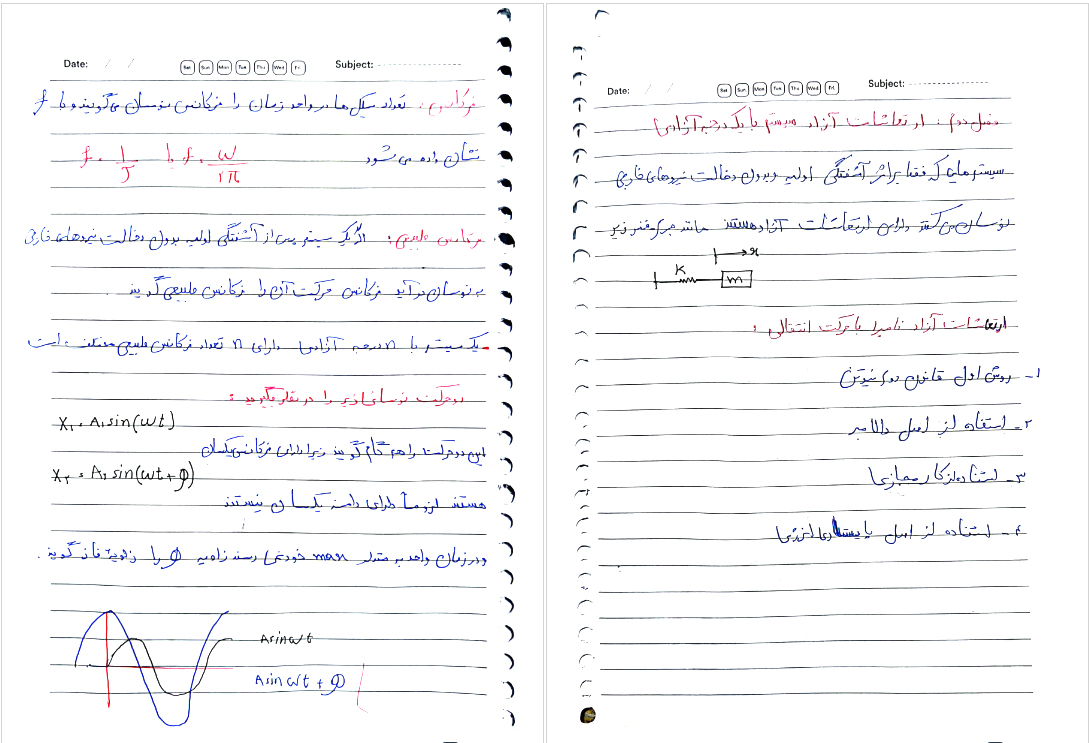 Date: / /
Sat Sun Mon Tue Thu Wed Fri
Subject:
فرکانس: تعداد سیکل ها در واحد زمان را فرکانس نوسان می گویند و با f
نشان داده می شود f = 1/T یا f = ω/۲π
فرکانس طبیعی: اگر یک سیستم پس از آشفتگی اولیه بدون دخالت نیروهای خارجی
به نوسان در آید فرکانس حرکت آن را فرکانس طبیعی گویند.
یک سیستم با n درجه آزادی دارای n تعداد فرکانس طبیعی مختلف است
دو حرکت نوسانی زیر را در نظر بگیرید:
X₁ = A₁ sin(ωt)
این دو حرکت را هم گام گویند زیرا دارای فرکانس یکسان
X₂ = A₂ sin(ωt+φ)
هستند لزوماً دارای دامنه یکسان نیستند
و در زمان واحد به مقدار max خود نمی رسند زاویه φ را زاویه فاز گویند.
A sin ωt
A sin ωt + φ
Date: / /
Sat Sun Mon Tue Thu Wed Fri
Subject:
فصل دوم: ارتعاشات آزاد سیستم با یک درجه آزادی
سیستم هایی که فقط بر اثر آشفتگی اولیه و بدون دخالت نیروهای خارجی
نوسان می کنند دارای ارتعاشات آزاد هستند مانند جرم و فنر زیر
x
K
m
ارتعاشات آزاد نامیرا با حرکت انتقالی:
۱- روش اول قانون دوم نیوتن
۲- استفاده از اصل دالامبر
۳- استفاده از کار مجازی
۴- استفاده از اصل پایستاری انرژی